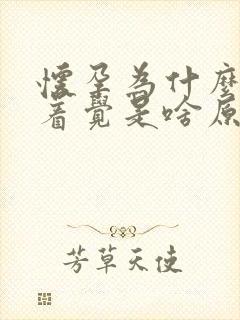 懷孕為什麼
着覺是啥原
芳草天使